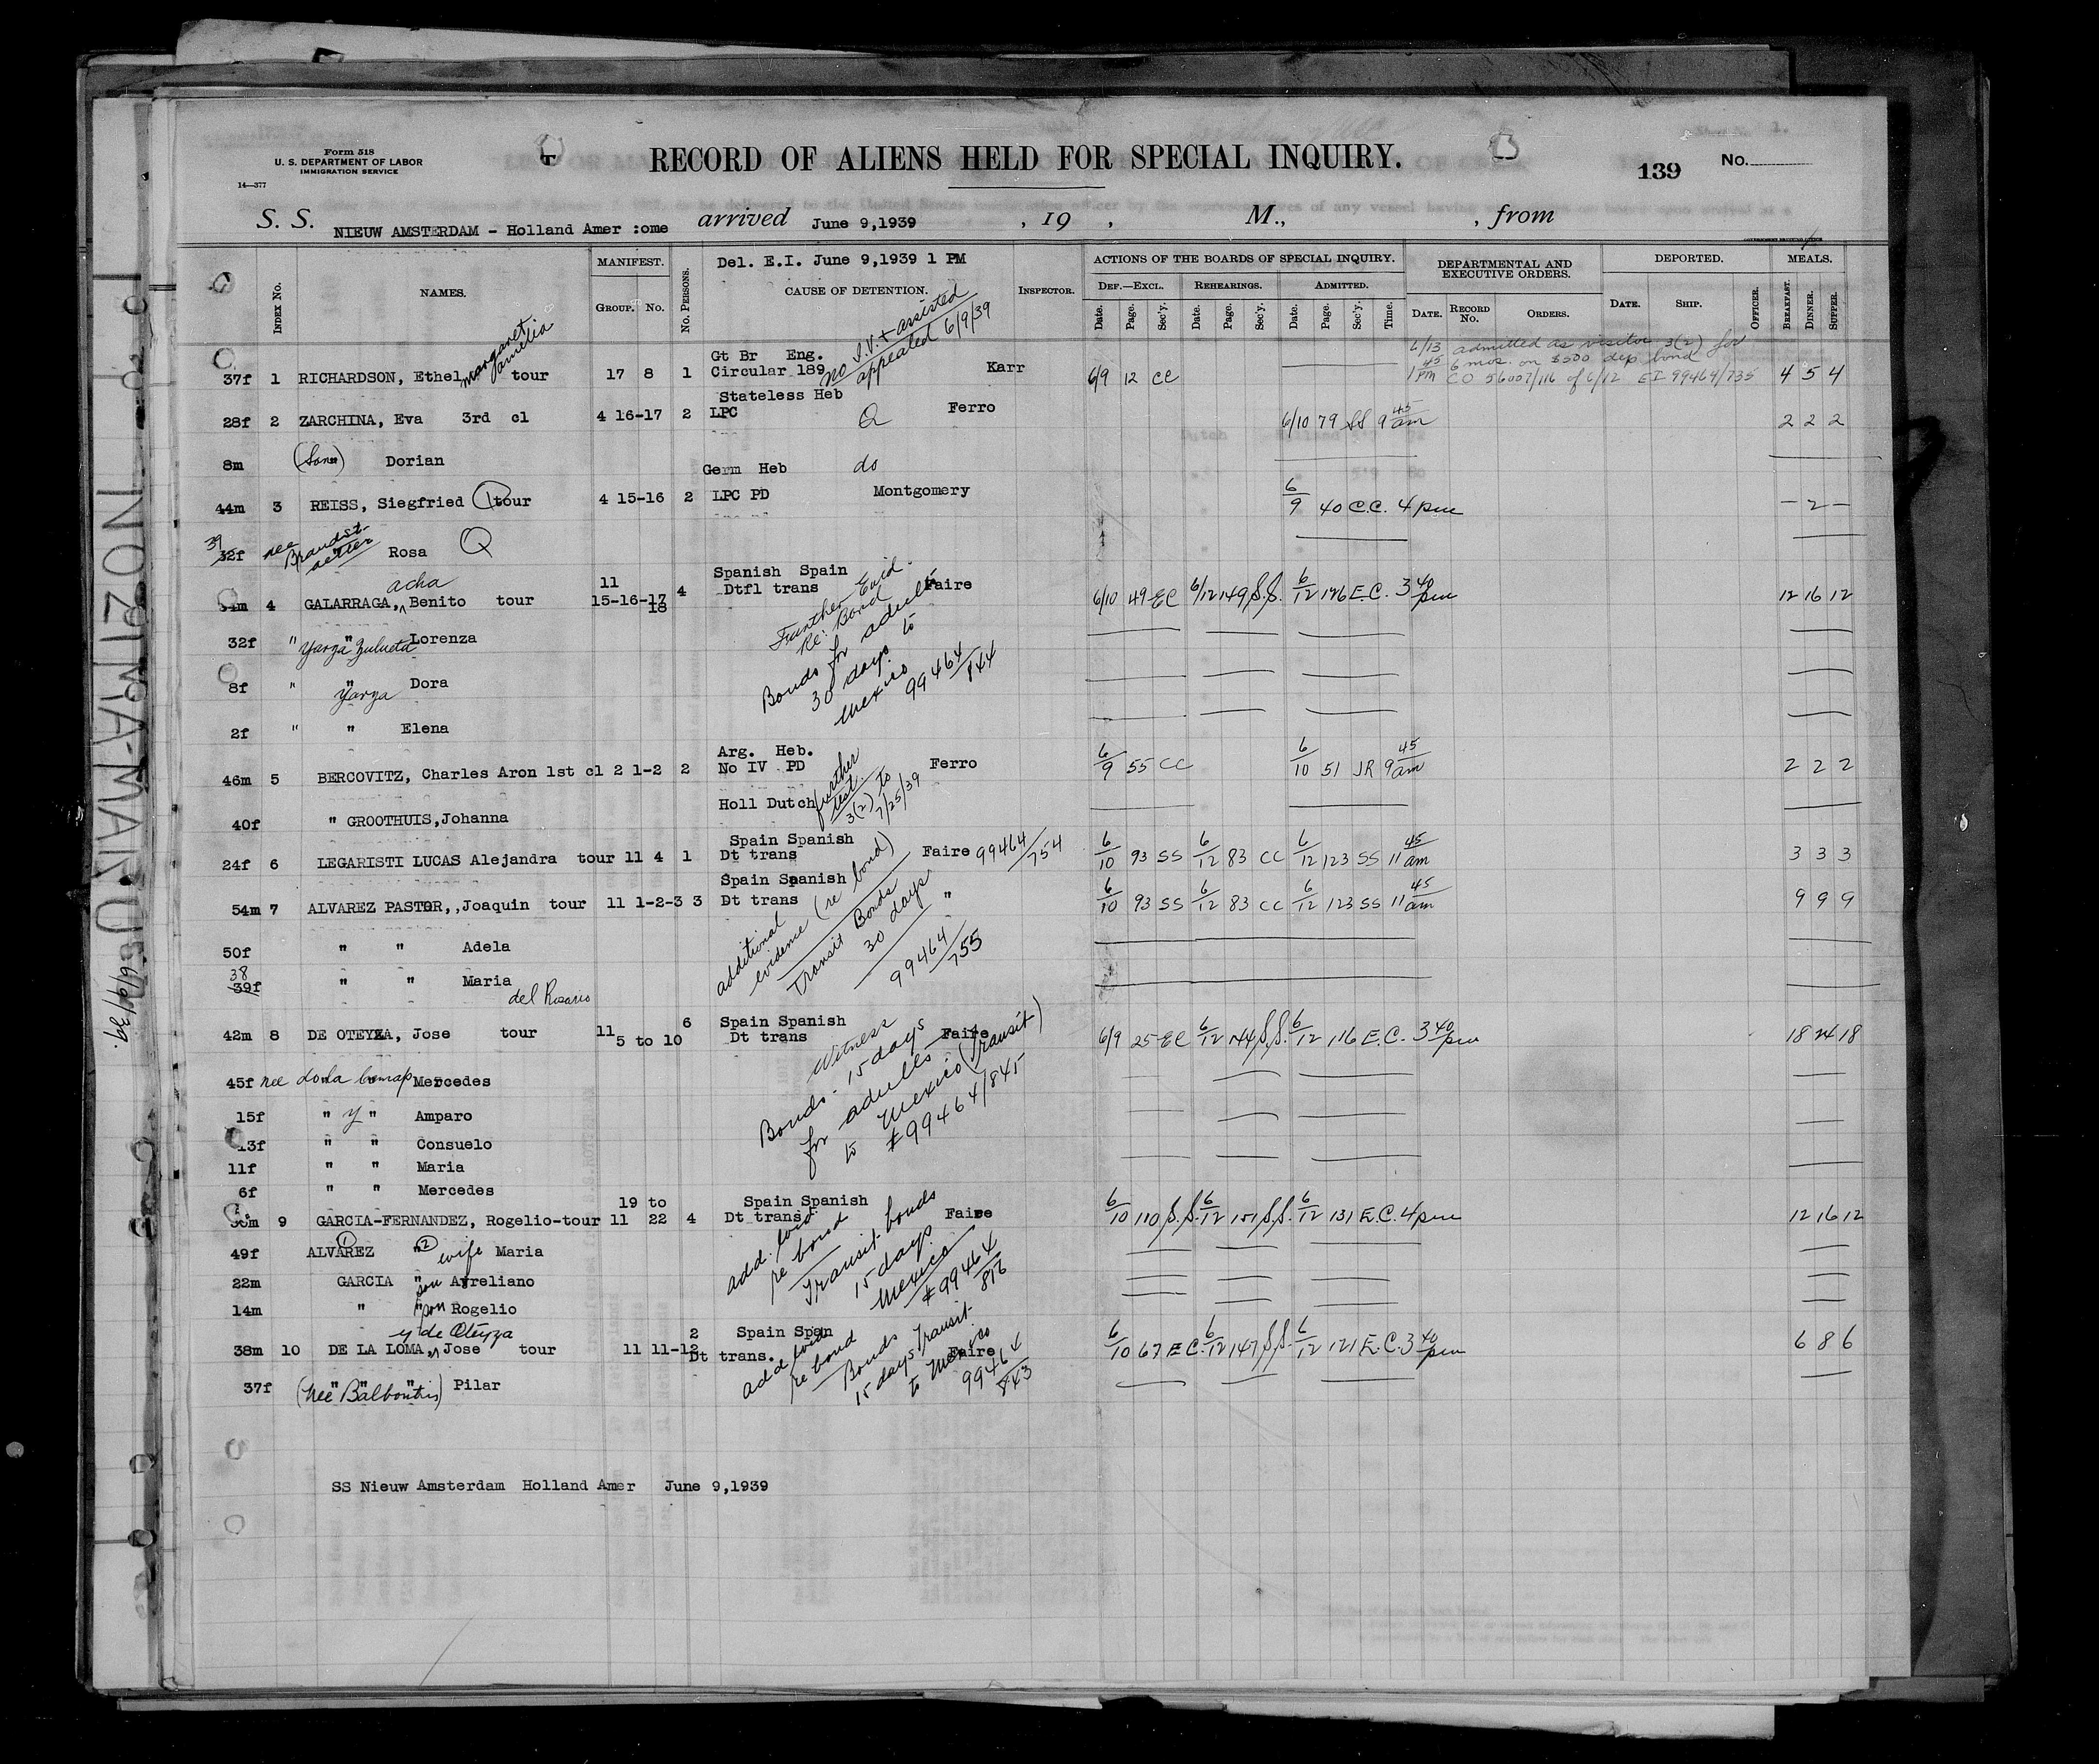 Form 518
U. S. DEPARTMENT OF LABOR
IMMIGRATION SERVICE
14—377
RECORD OF ALIENS HELD FOR SPECIAL INQUIRY.
139 No.
S. S. NIEUW AMSTERDAM - Holland Amer :ome arrived June 9,1939 , 19 , M., , from
Index No. NAMES. MANIFEST. Group. No. No. Persons. Del. E.I. June 9,1939 1 PM CAUSE OF DETENTION. Inspector. ACTIONS OF THE BOARDS OF SPECIAL INQUIRY. DEPARTMENTAL AND EXECUTIVE ORDERS. DEPORTED. MEALS.
Def.—Excl. Rehearings. Admitted.
Date. Page. Sec'y. Date. Page. Sec'y. Date. Page. Sec'y. Time. Date. Record No. Orders. Date. Ship. Officer. Breakfast. Dinner. Supper.
Margaret Amelia
no I.V. + assisted
appealed 6/9/39
6/13 admitted as visitor 3(2) for
1 45 PM 6 mos. on $500 dep bond
CO 56007/116 of 6/12 EI 99464/735
Gt Br Eng.
37f 1 RICHARDSON, Ethel tour 17 8 1 Circular 189 Karr 6/9 12 CC 4 5 4
Stateless Heb
28f 2 ZARCHINA, Eva 3rd cl 4 16-17 2 LPC Q Ferro 6/10 79 SS 9 45 am 2 2 2
8m (Son) Dorian do
Germ Heb
44m 3 REISS, Siegfried 1 tour 4 15-16 2 LPC PD Montgomery 6/9 40 C.C. 4 pm — 2 —
39 32f nee Brandstaetter Rosa Q
acha
Spanish Spain
4 GALARRAGA, Benito tour 11 15-16-17 18 4 Dtfl trans Faire 6/10 49 EC 6/12 149 S.S. 6/12 126 E.C. 3 40 pm 12 16 12
Further Evid.
Re: Bond
Bonds for adults
30 days to
Mexico 99464/844
32f " " Yarza Zulueta Lorenza
8f " " Yarza Dora
2f " " Elena
Arg. Heb.
46m 5 BERCOVITZ, Charles Aron 1st cl 2 1-2 2 No IV PD Ferro 6/9 55 CC 6/10 51 JR 9 45 am 2 2 2
further test.
3(2) to 7/25/39
Holl Dutch
40f " GROOTHUIS,Johanna
Spain Spanish
24f 6 LEGARISTI LUCAS Alejandra tour 11 4 1 Dt trans Faire 99464/754 6/10 93 SS 6/12 83 CC 6/12 123 SS 11 45 am 3 3 3
Spain Spanish
54m 7 ALVAREZ PASTOR,,Joaquin tour 11 1-2-3 3 Dt trans " 6/10 93 SS 6/12 83 CC 6/12 123 SS 11 45 am 9 9 9
additional evidence (re bond)
Transit Bonds
30 days
99464/755
50f " " Adela
38 39f " " Maria
del Rosario
Spain Spanish
42m 8 DE OTEYZA, Jose tour 11 5 to 10 6 Dt trans Faire 6/9 25 EC 6/12 144 S.S. 6/12 116 E.C. 3 40 pm 18 24 18
Witness
Bonds - 15 days
for adults
to Mexico (Transit)
#99464/845
45f nee Mercedes
15f " y " Amparo
13f " " Consuelo
11f " " Maria
6f " " Mercedes
Spain Spanish
9 GARCIA-FERNANDEZ, Rogelio-tour 11 19 to 22 4 Dt trans. Faire 6/10 110 S.S. 6/12 151 S.S. 6/12 131 E.C. 4 pm 12 16 12
add. evid
re bond
Transit bonds
15 days
Mexico
#99464/
49f ALVAREZ 1 " 2 wife Maria
22m GARCIA " son Aureliano
14m " " son Rogelio
y de Oteyza
Spain Span
38m 10 DE LA LOMA, Jose tour 11 11-12 2 Dt trans. Faire 6/10 67 E C. 6/12 147 S.S. 6/12 121 E.C. 3 40 pm 6 8 6
add evid
re bond
Bonds
15 days Transit
to Mexico
99464/843
37f (nee Balbontin) " " " Pilar
SS Nieuw Amsterdam Holland Amer June 9,1939
6/9/39.